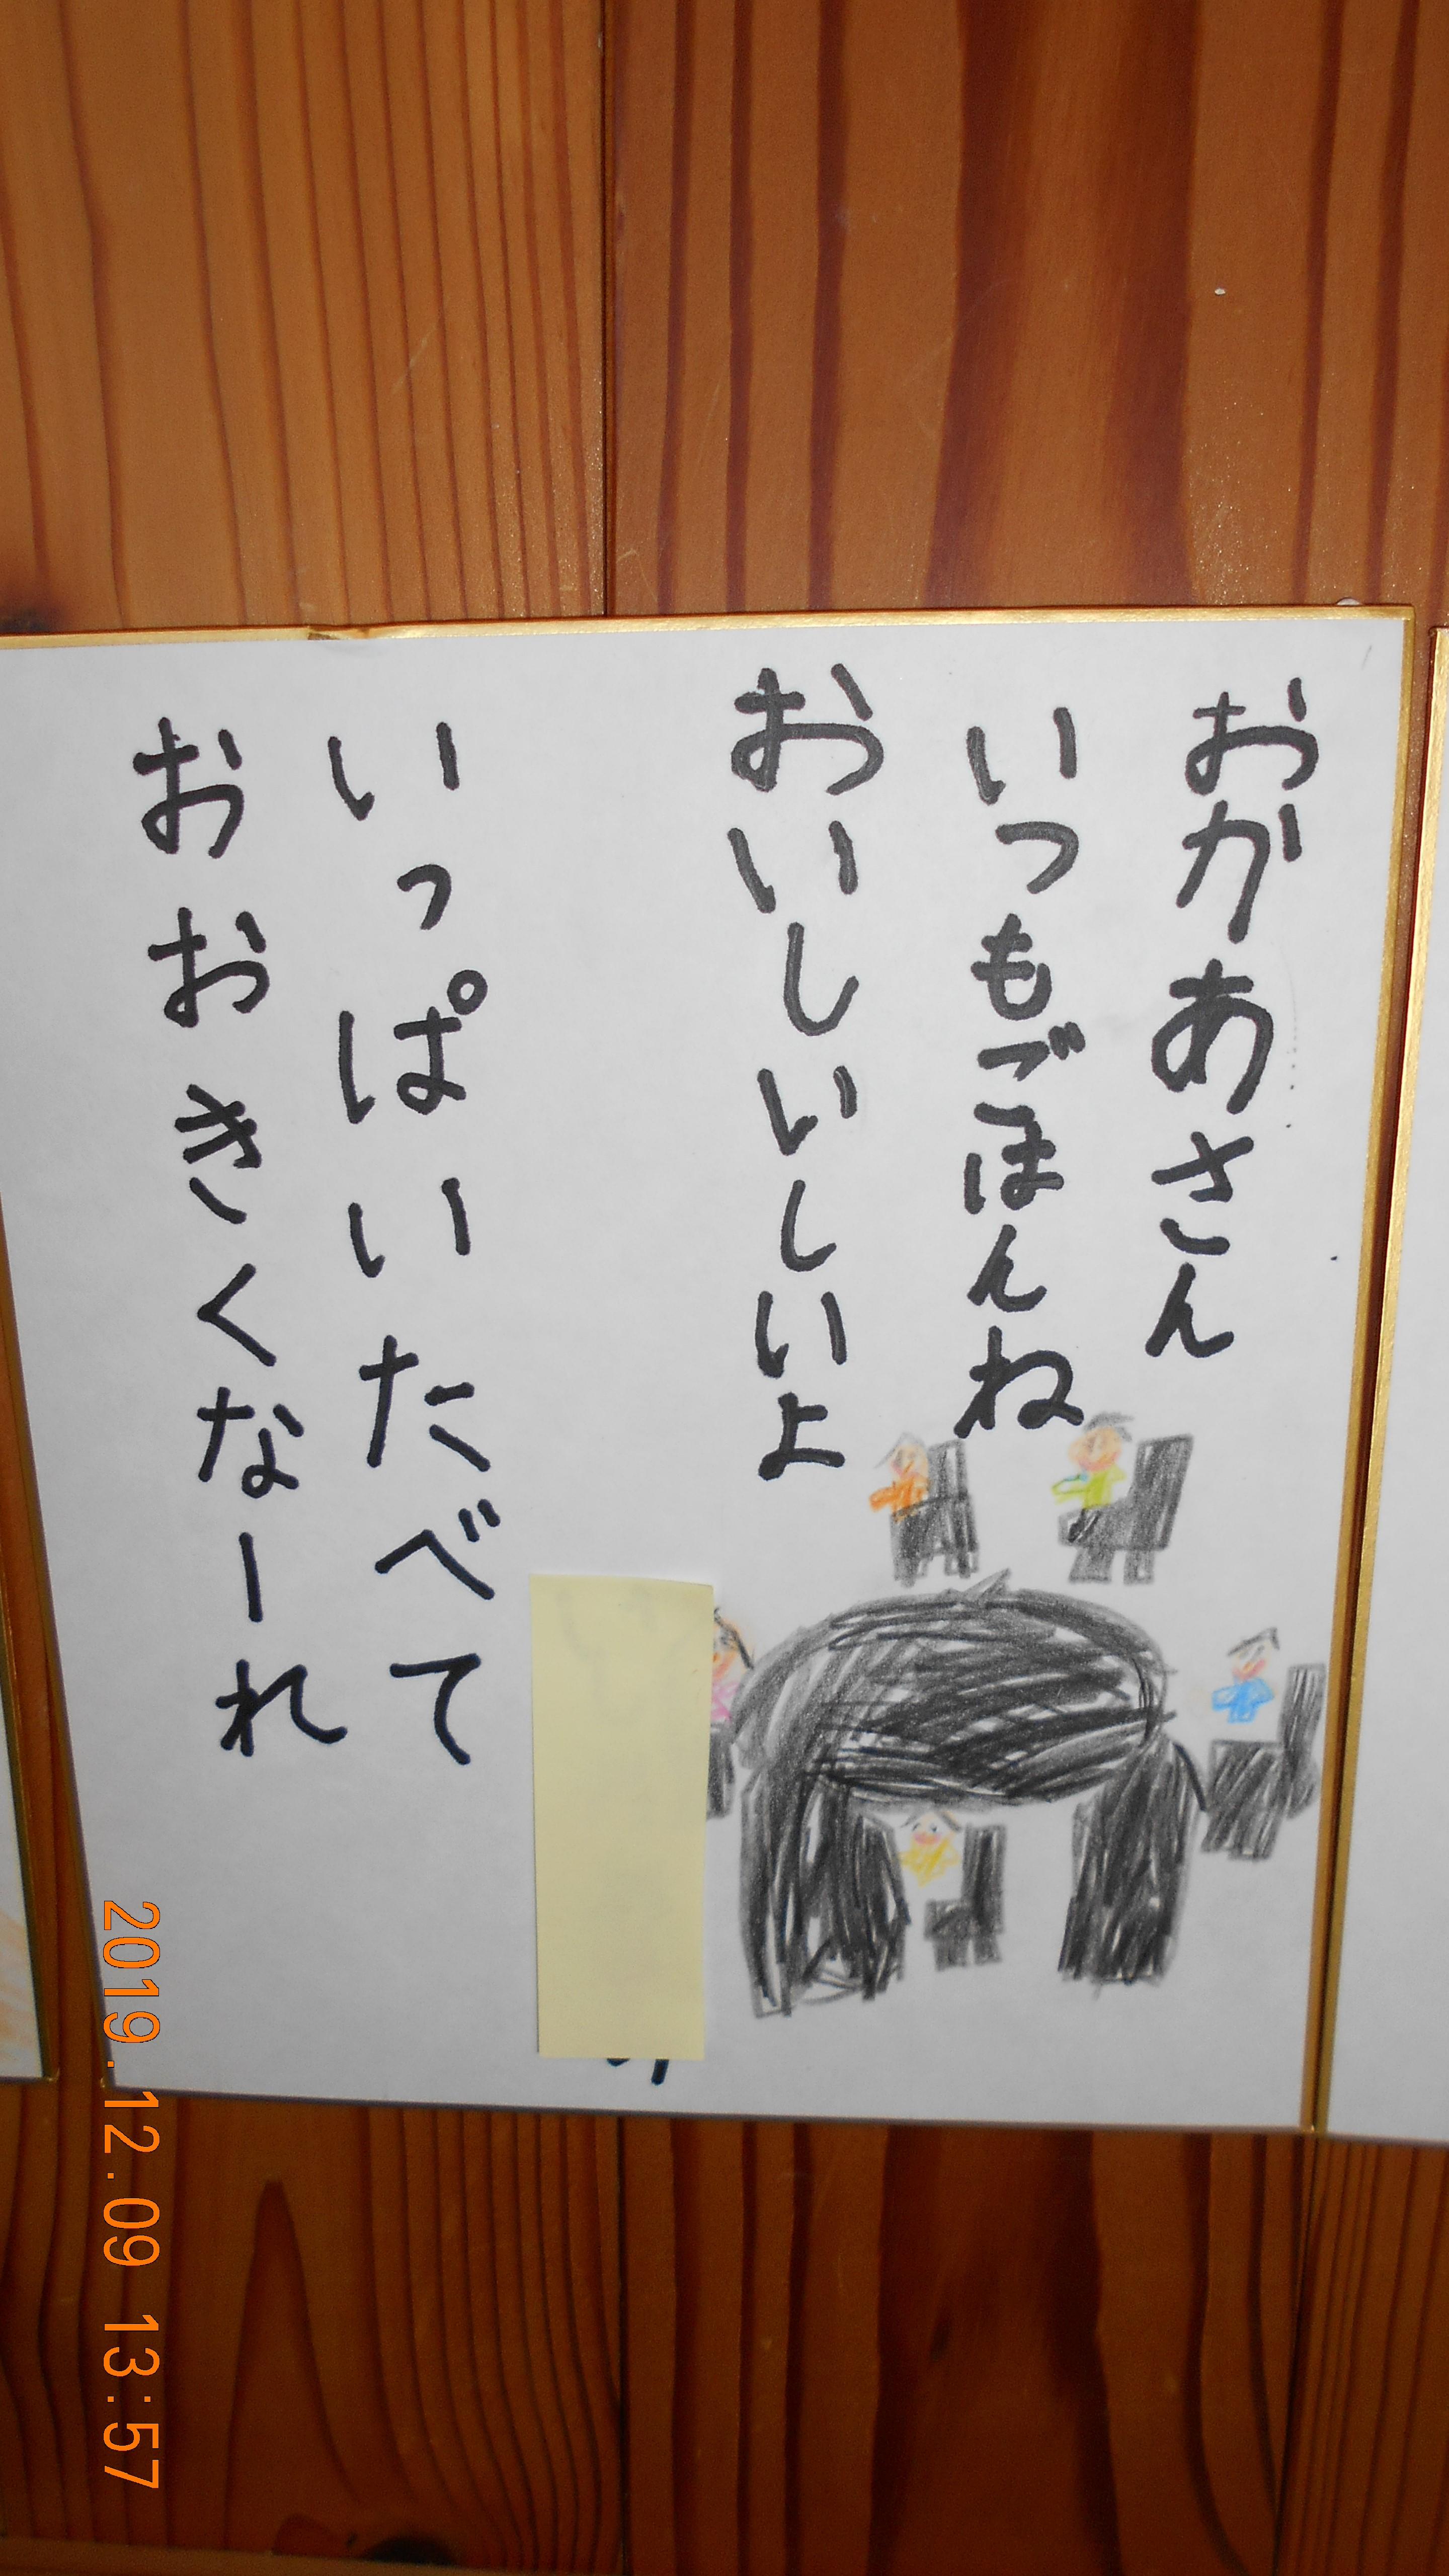 おかあさん
いつもごはんね
おいしいしいよ
いっぱいたべて
おおきくなーれ
2019.12.09 13:57